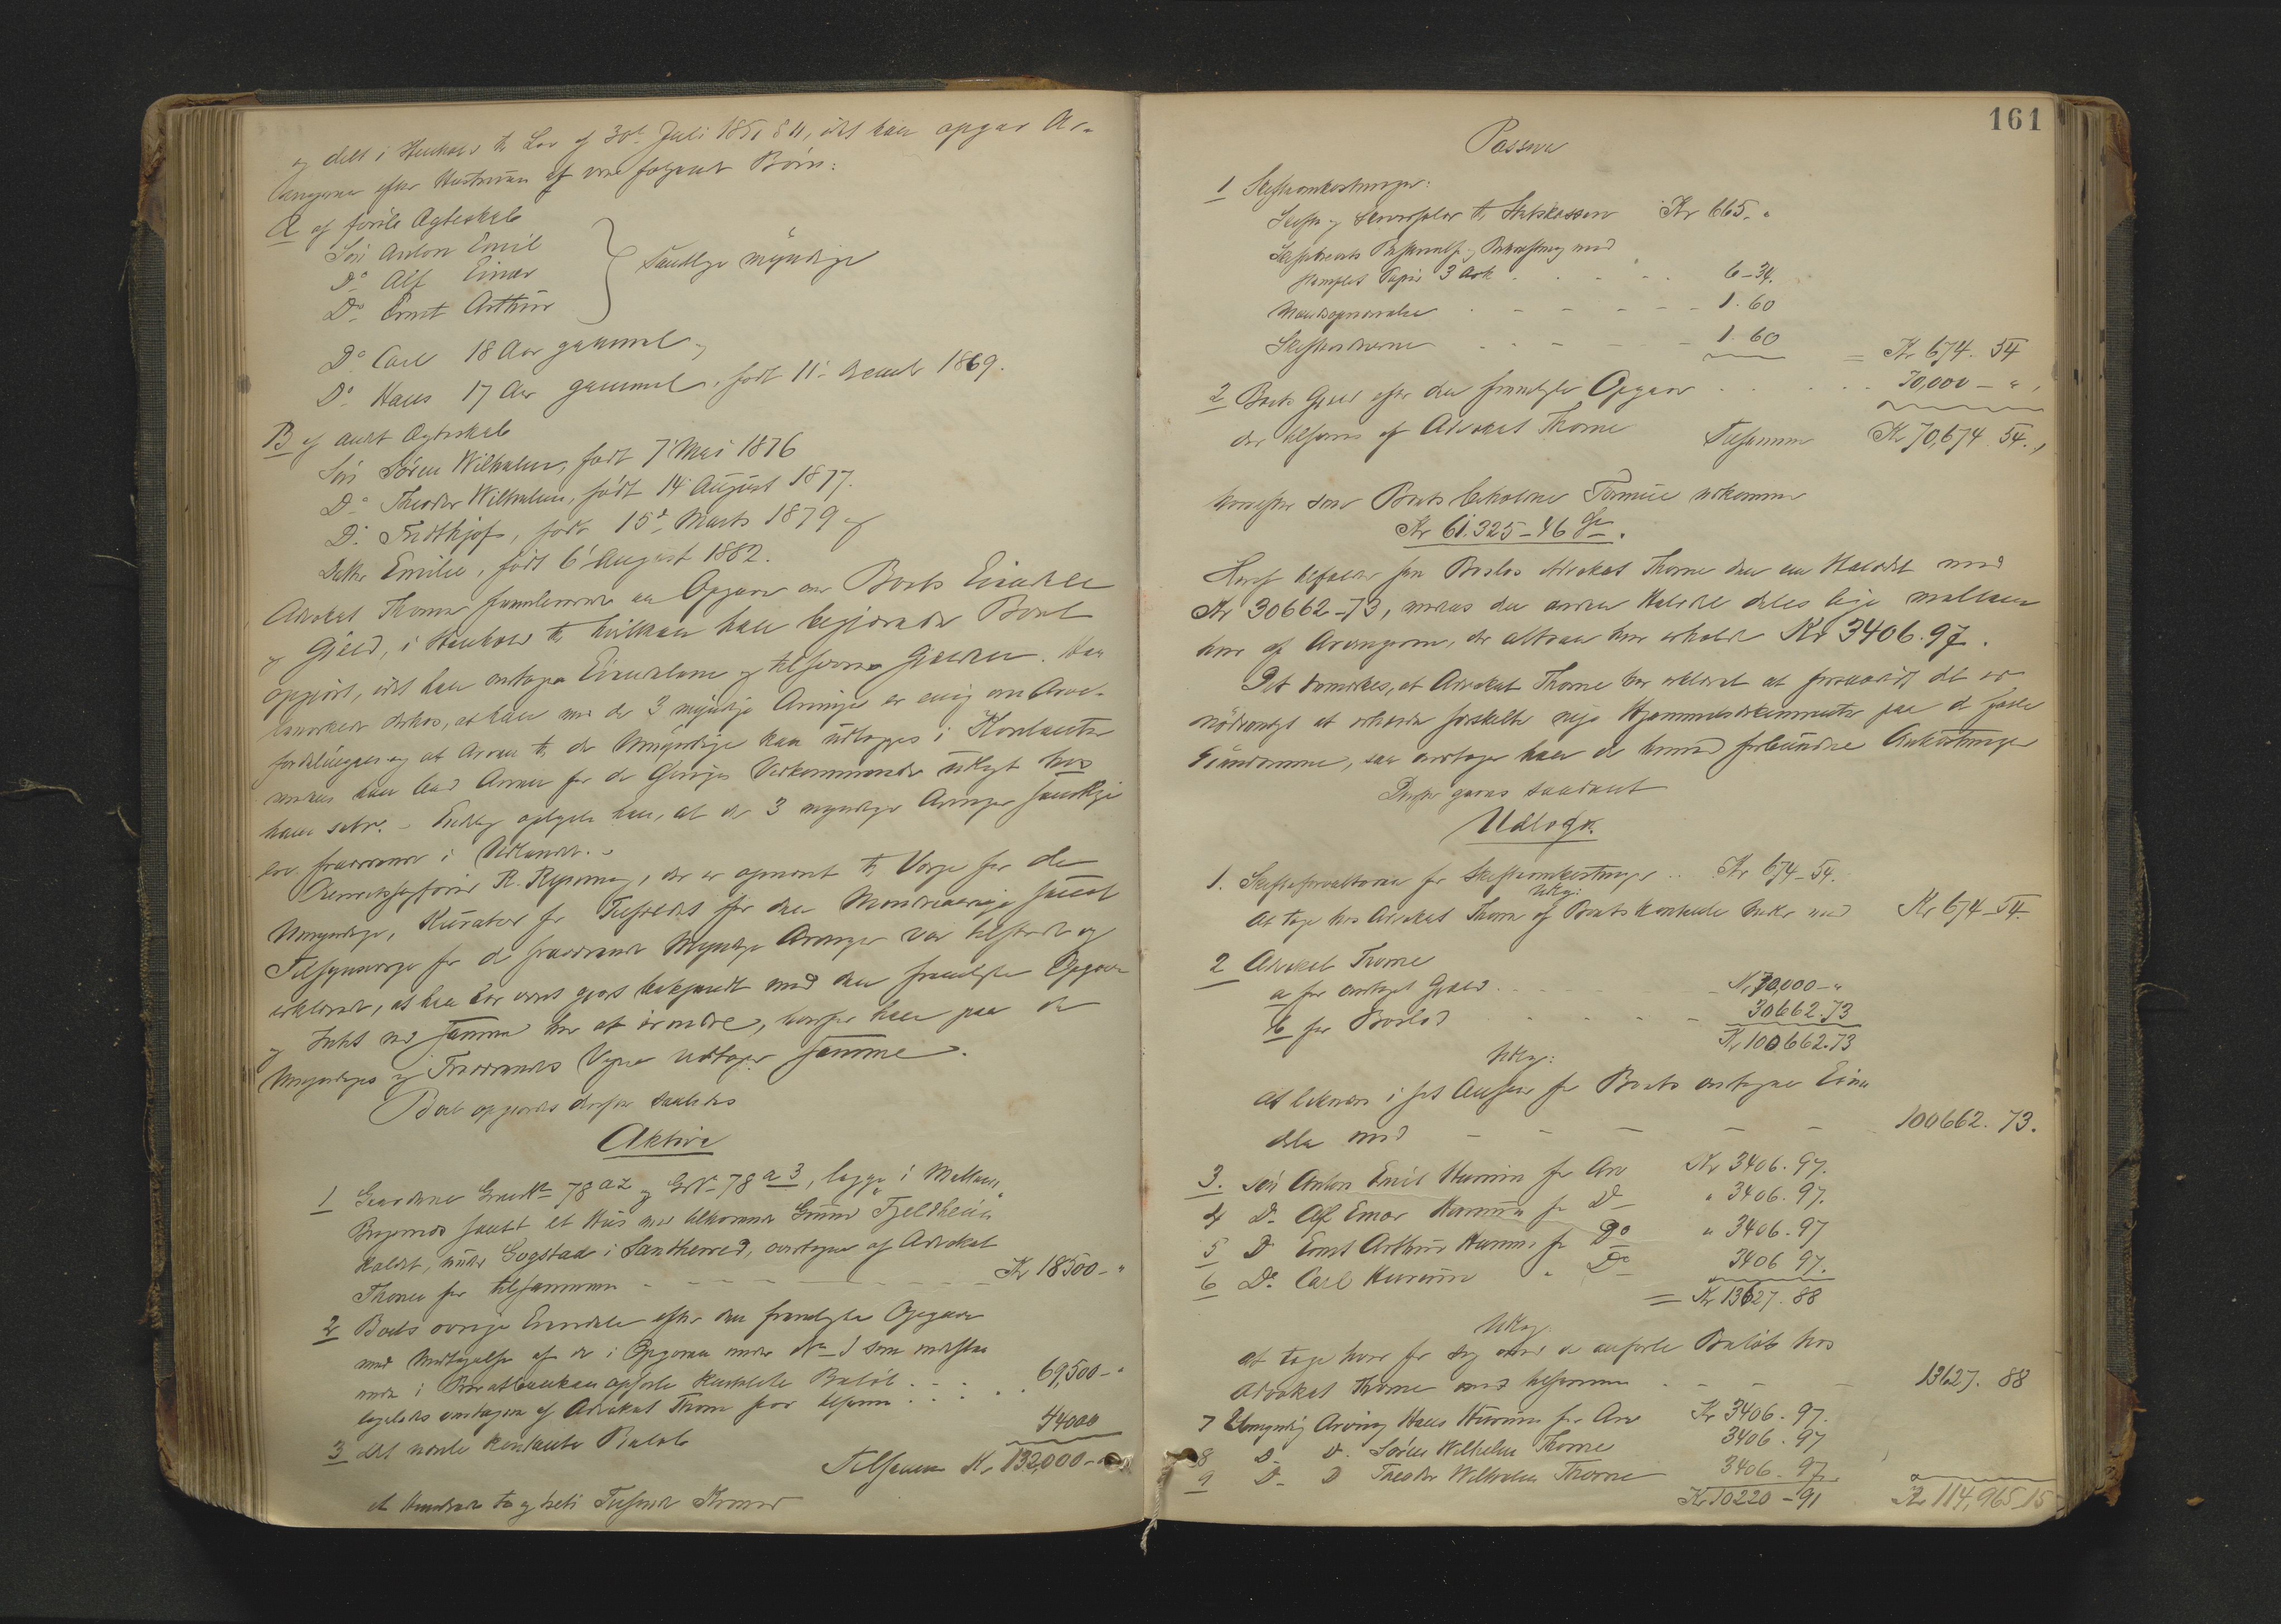 og delt i Henhold til Lov af 30te Juli 1851 § 11, idet han opgav Ar-
vingerne efter Hustruen at være følgende Børn:
A af første Ægteskab
Søn Anton Emil
Do Alf Einar
Do Ernst Arthur
samtlige myndige
Do Carl 18 Aar gammel,
Do Hans 17 Aar gammel, født 11te December 1869.
B af andet Ægteskab
Søn Søren Wilhelm, født 7 Mai 1876
Do Theodor Wilhelm, født 14 August 1877.
Do Fridthjof, født 15de Marts 1879 og
Datter Emilie, født 6 August 1882.
Advokat Thorne fremleverede en Opgave over Boets Eiendele
og Gjæld, i Henhold til hvilken han begjærede Boet
opgjort, idet han overtager Eiendelene og tilsvarer Gjælden. Han
bemærkede derhos, at han med de 3 myndige Arvinger er enig om Arve-
fordelingen og at Arven til de Umyndige kan udlægges i Kontanter
medens han lod Arven for de Øvriges Vedkommende udlagt hos
ham selv. – Endelig oplyste han, at de 3 myndige Arvinger samtlige
ere fraværende i Udlandet. –
R. , der er opnævnt til Værge for de
Umyndige, Kurator for Tilfældet for den Mindreaarige samt
Tilsynsværge for de fraværende Myndige Arvinger var tilstede og
erklærede, at han har været gjort bekjendt med den fremlagte Opgave
og Intet ved samme har at erindre, hvorfor han paa de
Umyndiges og Fraværendes Vegne vedtager samme.
Boet opgjordes derfor saaledes
Aktiva
1 Gaardene GrundNo 78 a 2 og GNo 78 a 3, begge i Mellem
samt et Hus med tilhørende Grund Fjeldheim
kaldet, under Gogstad i Sandherred, overtagne af Advokat
Thorne for tilsammen – – – – – Kr 18500 – "
2 Boets øvrige Eiendele efter den fremlagte Opgave
med Undtagelse af de i Opgaven under No 1 som
i Privatbanken opførte kontante Beløb . . .
ligeledes overtagne af Advokat Thorne for tilsammen . . . 69,500 – "
3 det nævnte kontante Beløb 44000
Tilsammen Kr 132,000 – "
et Hundrede to og treti Tusinde Kroner
161
Passiva
1 Skifteomkostninger:
Skifte og til Statskassen Kr 665 – "
Skiftebrevets Beskrivelse og Bekræftning med
stemplet Papir 3 Ark . . . . 6 – 34.
– – – – – 1. 60
– – – – – 1. 60
= Kr 674. 54
2 Boets Gjæld efter den fremlagte Opgave . . . . 70,000 – " ,
der tilsvares af Advokat Thorne Tilsammen Kr 70,674. 54. ,
hvorefter som Boets beholdne Formue udkommer
Kr 61.325 – 46 Øre.
Heraf tilfalder som Boslod Advokat Thorne den ene Halvdel med
Kr 30662 – 73, medens den anden Halvdel deles lige mellem
hver af Arvingerne, der altsaa hver erholder Kr 3406. 97.
Det bemærkes, at Advokat Thorne har erklæret at forsaavidt det er
nødvendigt at erhverve særskilte nye Hjemmelsdokumenter paa de faste
Eiendomme, saa overtager han de hermed forbundne Omkostninger
Derefter gjøres saadant
Udlæg.
1. Skifteforvalteren for Skifteomkostninger . . Kr 674 – 54.
Udlæg:
At tage hos Advokat Thorne af Boets kontante med Kr 674 – 54.
2 Advokat Thorne
a for overtaget Gjæld . . . . Kr 70,000 – "
b for Boslod – – – – 30662. 73
Kr 100662. 73
Udlæg:
At beholde i sit Ansvar for Boets overtagne Eien
dele med – – – – – 100662. 73.
3. Søn Anton Emil for Arv Kr 3406. 97.
4 Do Alf Einar for Do " 3406. 97.
5 Do Ernst Arthur for Do " 3406. 97
6 Do Carl " Do 3406 97.
= Kr 13627. 88
Udlæg
at tage hver for sig med de anførte Beløb hos
Advokat Thorne med tilsammen – – – 13627. 88
7 Umyndig Arving Hans for Arv Kr 3406. 97.
8 Do Do Søren Wilhelm Thorne 3406. 97
9 Do Do Theodor Wilhelm Thorne 3406. 97.
Kr 10220 – 91
Kr 114,965. 15